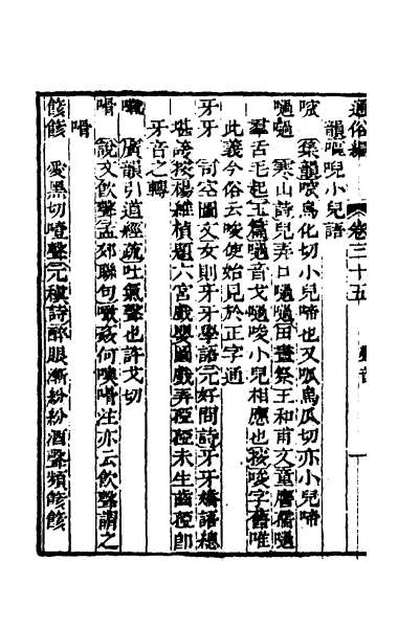 通俗編 卷三十五 聲音 一
韻嘔呪小兒語
㕦 集韻㕦烏化切小兒啼也又呱烏瓜切亦小兒啼
𠵩𠵩 寒山詩兒弄口𠵩𠵩田晝祭王和甫文童唇穉
羣舌毛起玉篇音戈小兒相應也按字舊唯
此義今俗云唆使始見於正字通
牙牙 司空圖文女則牙牙學語元好問詩牙牙嬌語總
堪誇按楊維楨題六宮戲嬰圖戲弄啞啞未生齒啞卽
牙音之轉
廣韻引道經疏吐氣聲也許戈切
嗗 說文飲聲孟郊聯句何嗗注亦云飲聲謂之
嗗
餩餩 愛黑切噎聲元稹詩醉眼漸紛紛酒聲頻餩餩